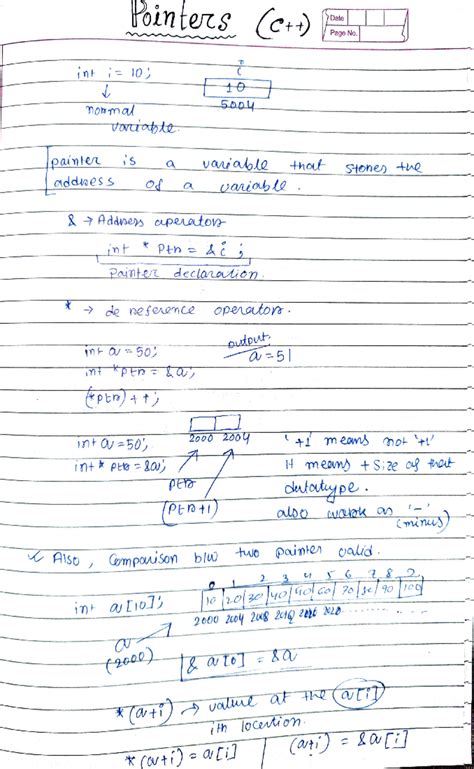 Pointers (C++)
Date
Page No.
int i = 10; i
10
↓ 5004
normal
variable.
pointer is a variable that stores the
address of a variable.
& → Address operator
int * ptr = &i ;
Pointer declaration.
* → de reference operator.
int a = 50; output:
int *ptr = &a; a = 51
(*ptr)++;
int a = 50; 2000 2004 '+1' means not '+1'
int * ptr = &a; It means + size of that
ptr datatype.
(ptr+1) also work as '-'
(minus)
✓ Also, Comparison b/w two pointer valid.
0 1 2 3 4 5 6 7 8 9
int a[10]; 10 20 30 40 50 60 70 80 90 100
2000 2004 2008 2012 2016 2020
a
(2000) & a[0] = &a
*(a+i) → value at the a[i]
ith location.
*(a+i) = a[i] (a+i) = &a[i]